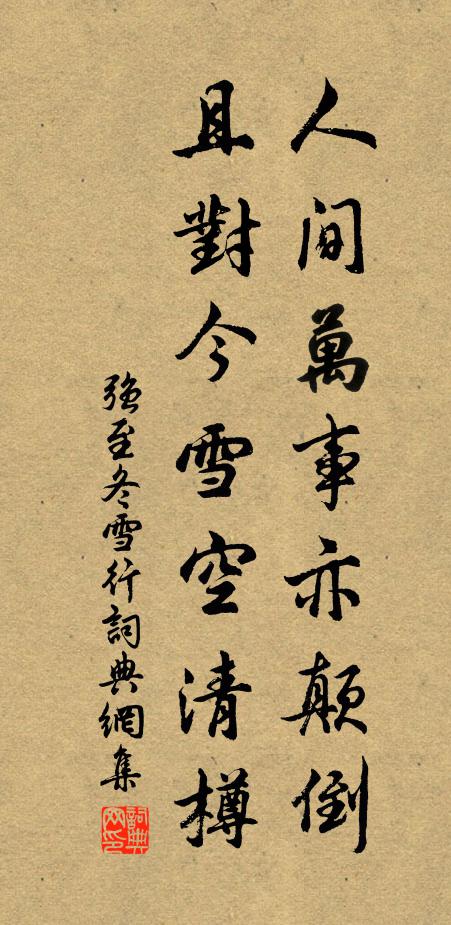 人間萬事亦顛倒
且對今雪空清樽
強至冬雪行詞典網集
詞典网印